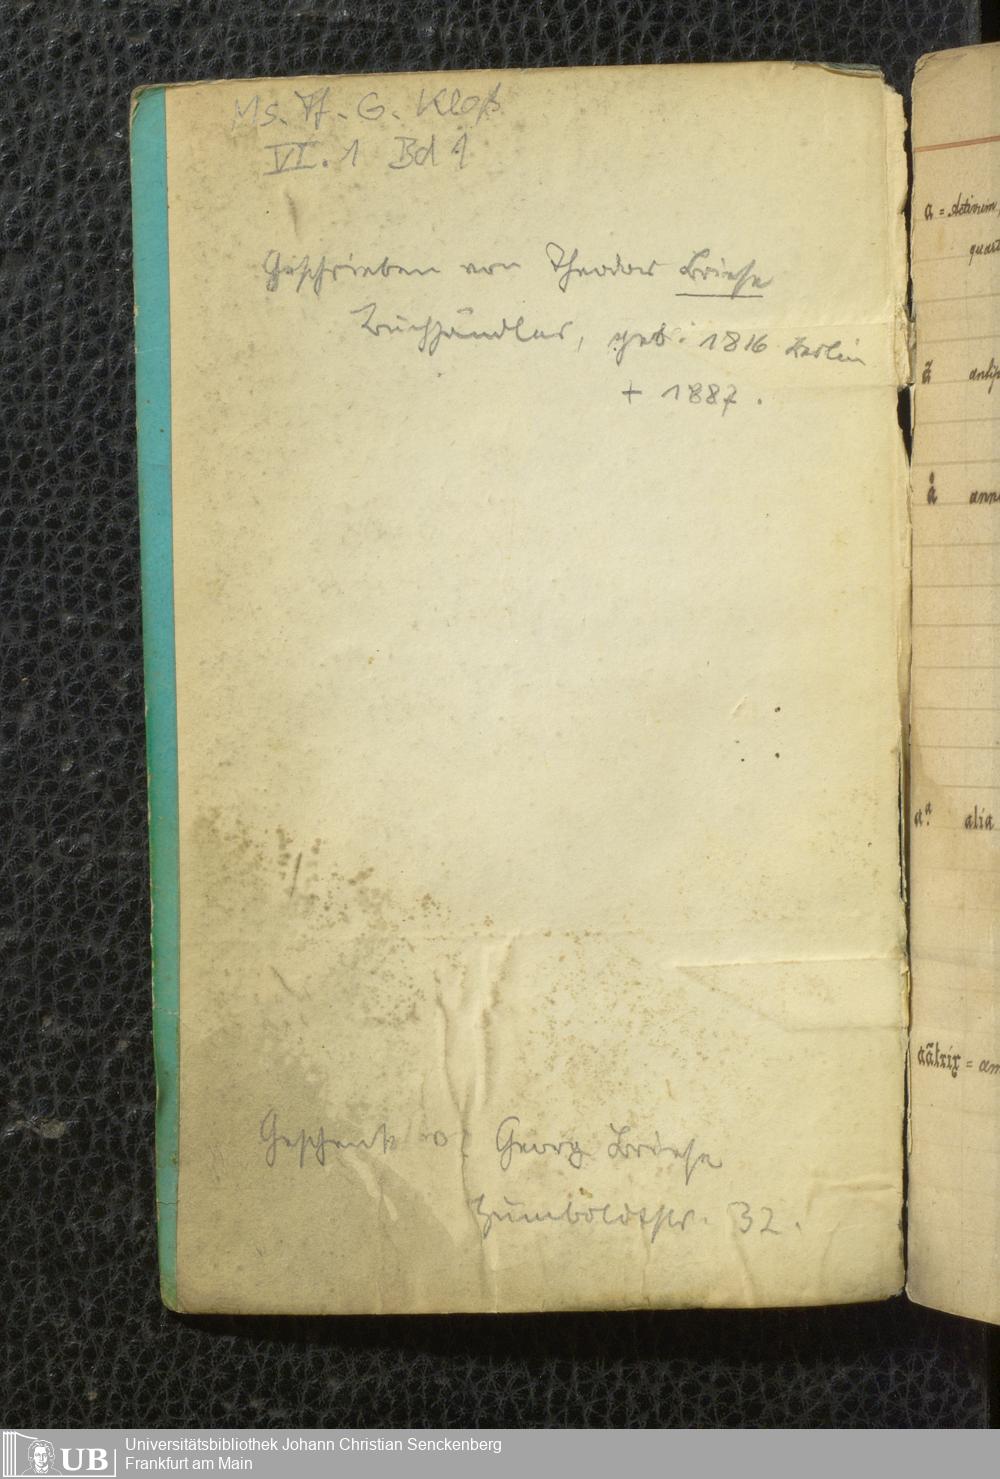 Ms. Ff. G. Kloß
VI. 1 Bd 1
Geschrieben von Theodor Briese
Buchhändler, geb. 1816 Berlin
+ 1887.
Geschenk v. Georg Briese
Humboldtstr. 32.
a = Activum,
ā
å
aᵃ. alia
aātrix = am
Universitätsbibliothek Johann Christian Senckenberg
UB Frankfurt am Main